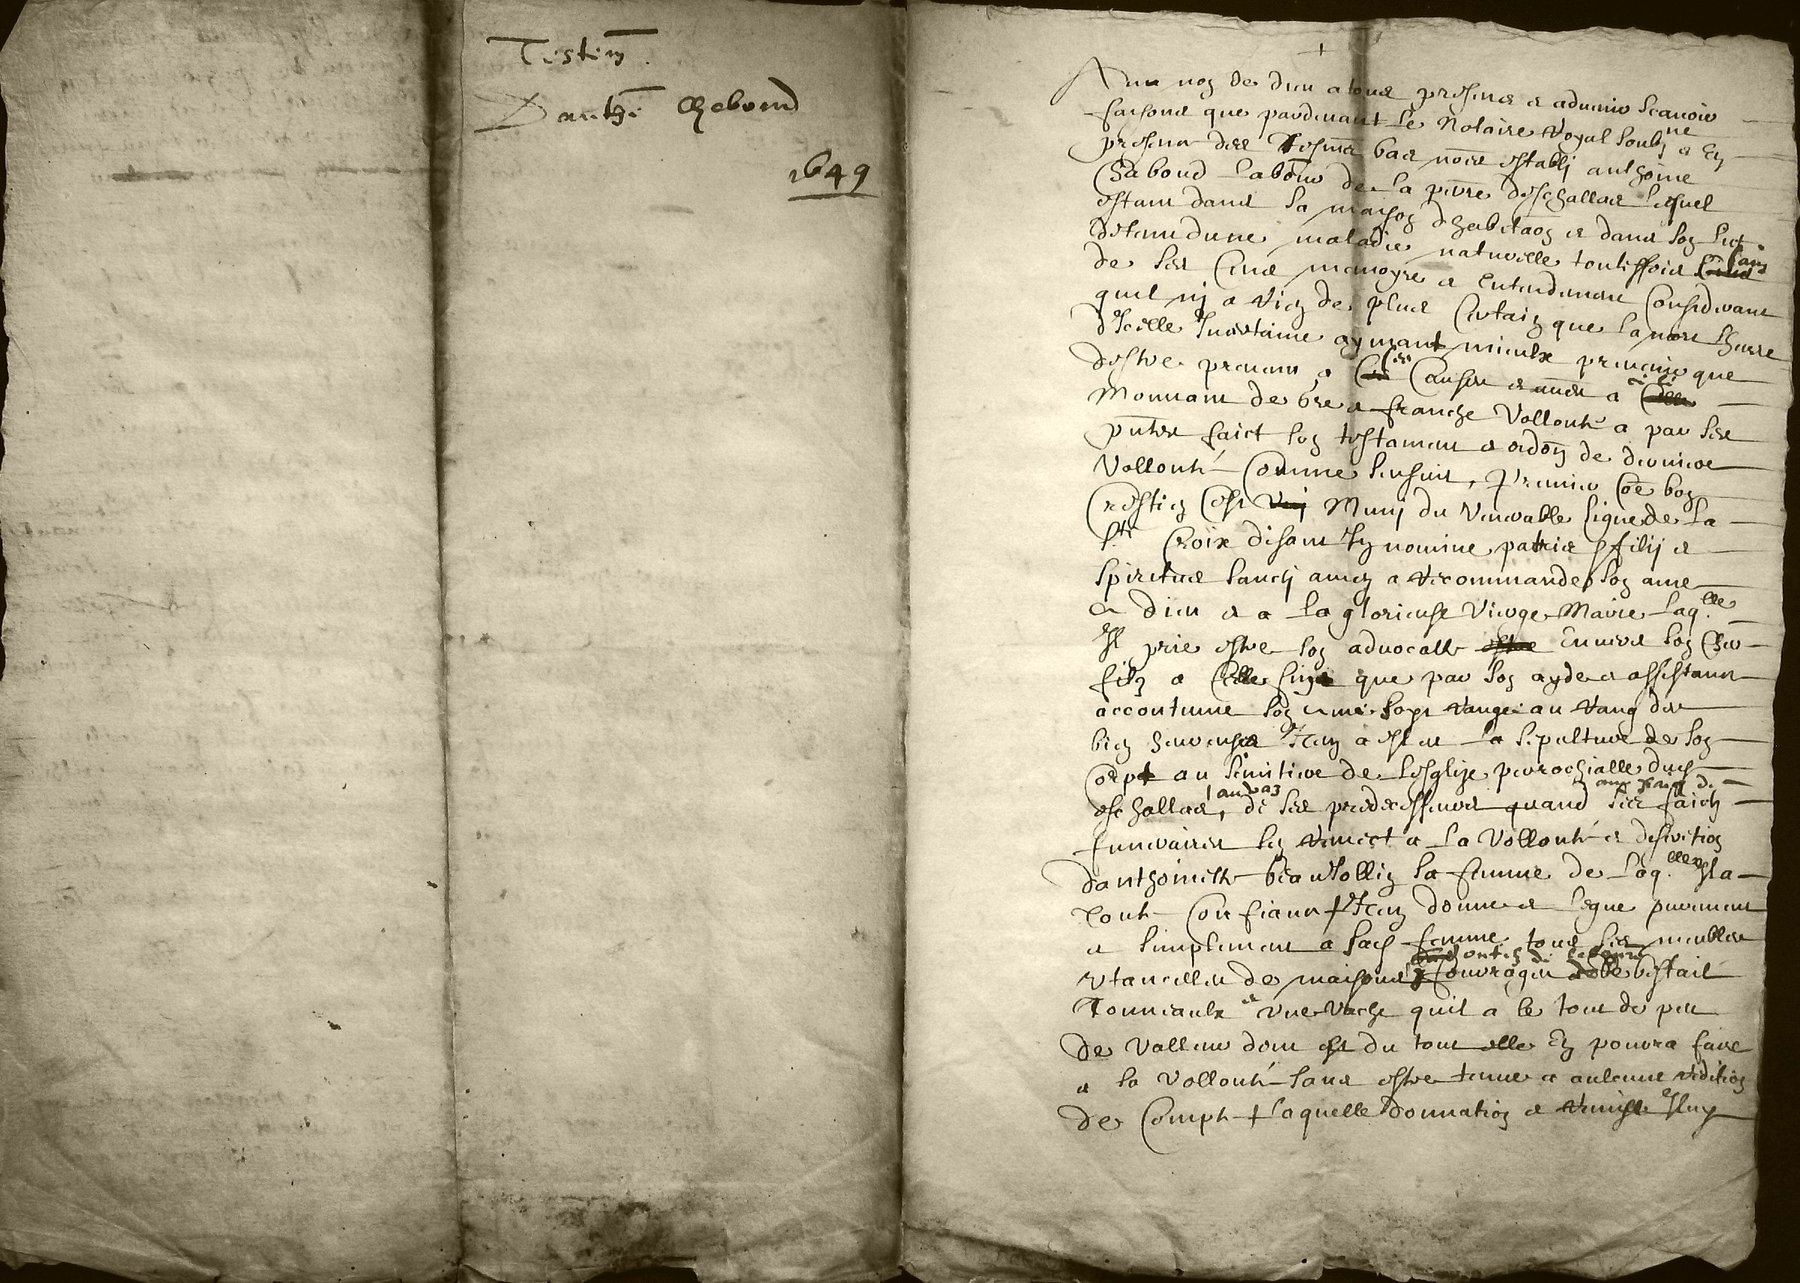 Testem
Danthe Cheboud
1649
Au nom de dieu a tous presens a advenir scavoir
faisons que pardevant le Notaire Royal soubzne a En
presence des tesmoins bas nommes establi anthoine
Chaboud labour de la parre deschallas lequel
estant dans sa maison dhabitaon et dans son lict
detenu dune maladie naturelle touteffois sain
de ses sens memoyre et Entendement Considerant
quil ny a rien de plus Certain que la mort lheure
dicelle Incertaine aymant mieulx prevenir que
destre prevenu a ces Causes et aultres a
Mouvant de gre et franche Vollonte a par ses
pntes faict son testament et ordon de derniere
Vollonte Comme sensuit, Premier Coe bon
Crestien cest Muny du Venerable signe de la
Ste Croix disant In nomine patris et filij et
spiritus sancti amen a recommande son ame
a dieu et a la glorieuse Vierge Marie laqlle
Il prie estre son advocatte Envers son Cher
filz a celle fin que par son ayde et assistance
son ame soyt rangee au rang des
bien heureux Item a esleu la sepulture de son
Corps au simitiere de lesglize parrochialle dud
eschallas, de ses predecesseurs quand
funeraires sen remect a la Vollonte et discretion
danthoinette beaujollin sa femme de laqlle Il a
toute Confiance + Item donne et legue purement
et simplement a sad femme tous ses meubles
ustancilles de maison bestail
Tonneaulx et une Vache quil a le tout de peu
de Valleur dont et du tout elle En pourra faire
a sa Vollonte sans estre tenue a aulcune redition
de Compte + laquelle donnation et